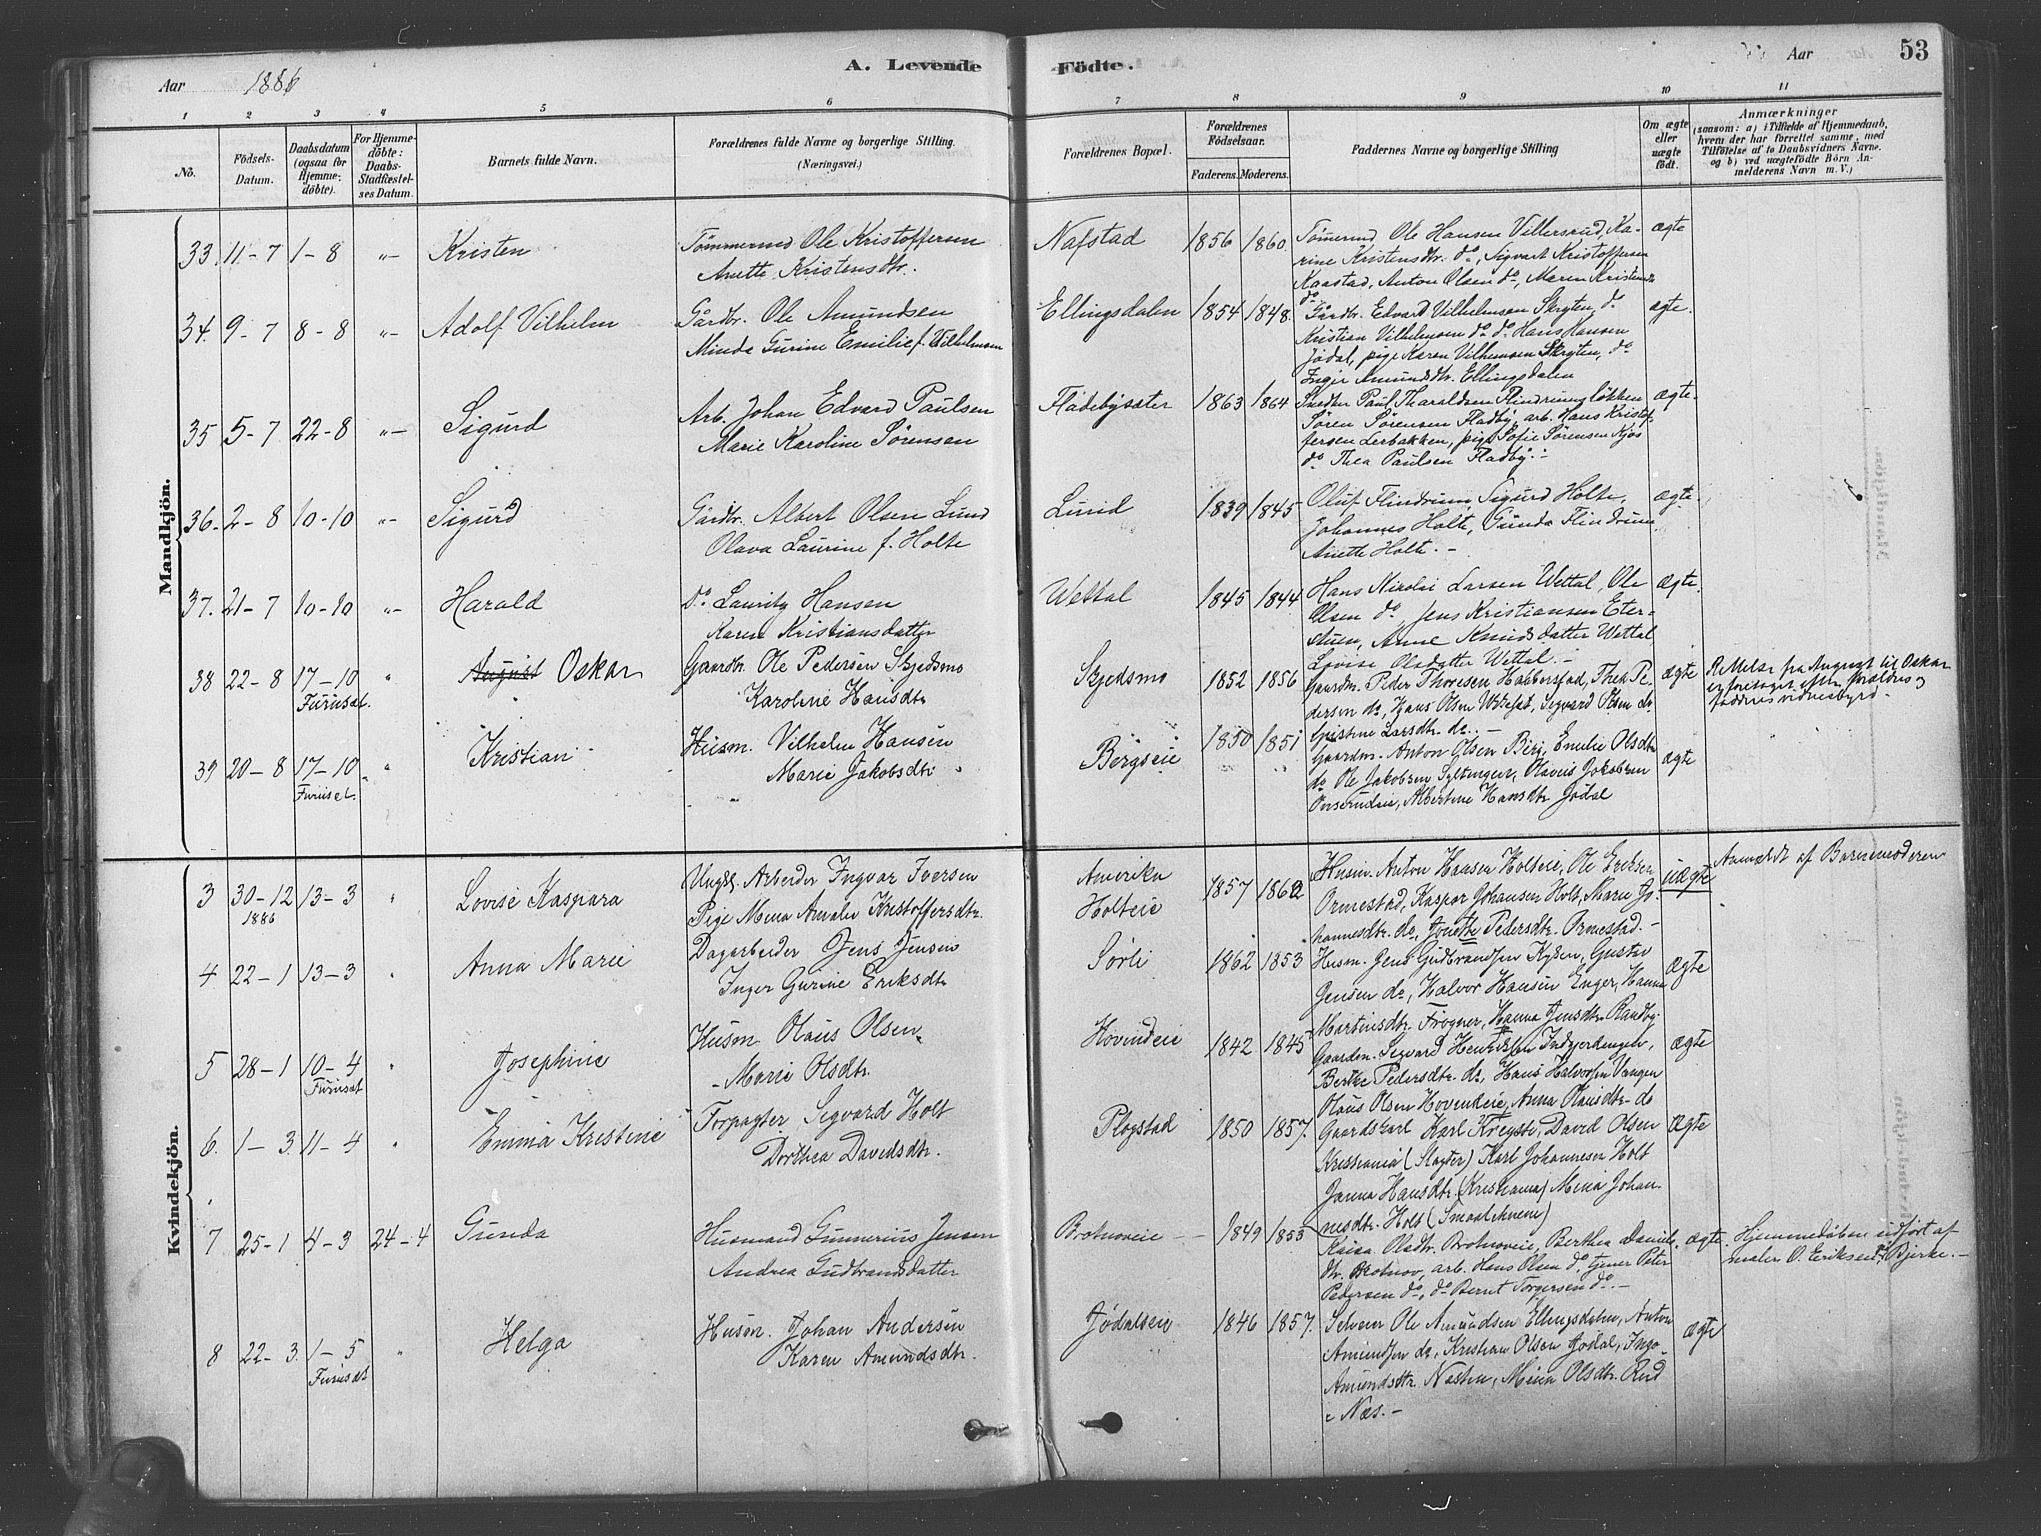 Aar 1886
A. Levende Födte.
Aar 53
1 2 3 4 5 6 7 8 9 10 11
No.
Födsels-Datum.
Daabsdatum (ogsaa for Hjemme-döbte).
For Hjemme-döbte: Daabs-Stadfæstel-ses Datum.
Barnets fulde Navn.
Forældrenes fulde Navne og borgerlige Stilling. (Næringsvei.)
Forældrenes Bopæl.
Forældrenes Födselsaar.
Faderens. Moderens.
Faddernes Navne og borgerlige Stilling
Om ægte eller uægte födt.
Anmærkninger
(saasom: a) i Tilfælde af Hjemmedaab, hvem der har forrettet samme, med Tilföielse af to Daabsvidners Navne. og b) ved uægtefödte Börn An-melderens Navn m. V.)
Mandkjön.
33. 11-7 1-8 "- Kristen
Tømmermd Ole Kristoffersen
Anette Kristensdtr.
Nafstad 1856 1860.
Tømermd Ole Hansen Villersrud, Ka-
rine Kristensdtr. do, Sigvart Kristoffersen
Kaastad, Anton Olsen do, Maren Kristensdtr
do.
ægte
34. 9-7 8-8 "- Adolf Vilhelm
Gårdbr. Ole Amundsen
Minda Gurine Emilie f. Vilhelmsen
Ellingsdalen 1854 1848.
Gårdbr. Edvard Vilhelmsen Skryten, do
Kristian Vilhelmsen do, do Hans Hansen
Jødal, pige Karen Vilhelmsen Skryten, do
Inger Amundsdtr. Ellingsdalen
ægte.
35 5-7 22-8 "- Sigurd
Arb. Johan Edvard Paulsen
Marie Karoline Sørensen
Fladebysæter 1863 1864
Snedker Paul Tharaldsen Flindrumsløkken
Søren Sørensen Fladby, arb. Hans Kristof-
fersen Lerbakken, pige Sofie Sørensen Kjos
do Thea Paulsen Fladby.-
ægte.
36. 2-8 10-10 "- Sigurd
Gårdbr. Albert Olsen Lund
Olava Laurine f. Holte
Lund 1839 1845
Oluf Flindrum, Sigurd Holte,
Johannes Holte, Gunda Flindrum,
Anette Holte.-
ægte.
37. 21-7 10-10 "- Harald
Do. Lauritz Hansen
Karen Kristiansdatter
Wettal 1845 1844
Hans Nikolai Larsen Wettal, Ole
Olsen do Jens Kristiansen Eter-
stuen, Anne Knudsdatter Wettal
Lovise Olsdatter Wettal.-
ægte.
38 22-8 17-10 Furuset. " August Oskar
Gaardbr. Ole Pedersen Skjedsmo
Karoline Hansdtr
Skjedsmo 1852 1856
Gaardm. Peder Thoresen Habberstad, Thea Pe-
dersen do, Hans Olsen, Sigvard Olsen do
Gristine Larsdtr. do.-
ægte
Rettelse fra August til Oskar
er foretaget efter forældres og
faddres vidnesbyrd.
39 20-8 17-10 Furuset. " Kristian
Husm. Vilhelm Hansen
Marie Jakobsdtr.
Bergseie 1850 1851
Gaardm. Anton Olsen Berg, Emelie Olsdtr
do Ole Jakobsen, Olaves Jakobsen
Onserudeie, Albertine Hansdtr Jødal
ægte
Kvindekjön.
3 30-12 1886 13-3 " Lovise Kaspara
Ungk. Arbeider Ingvar Iversen
Pige Mina Amalie Kristoffersdtr.
Amerika
Holteie 1857 1862
Husm. Anton Hansen Holteie, Ole Eriksen
Ormestad, Kaspar Johansen Holt, Marie Jo-
hannesdtr. do, Josette Pedersdtr. Ormestad.-
uægte
Anmeldt af Barnemoderen
4 22-1 13-3 " Anna Marie
Dagarbeider Jens Jensen
Inger Gurine Eriksdtr
Sørli 1862 1853
Husm. Jens Gudbrandsen, Gustav
Jensen do, Halvor Hansen Enger, Hanna
Martinsdtr. Frogner, Hanna Jensdtr. Randby.
ægte
5 28-1 10-4 Furuset " Josephine
Husm. Olaus Olsen
Marie Olsdtr.
Hovindeie 1842 1845
Gaardm. Sigvard Henriksen Indgjerdingen,
Berthe Pedersdtr. do, Hans Halvorsen Vangen
Olaus Olsen Hovindeie, Anna Olausdtr. do
ægte
6. 1-3. 11-4 " Emma Kristine
Forpagter Sigvard Holt
Dorthea Davidsdtr.
Plogstad 1850 1857.
Gaardskarl Karl Kreyste, David Olsen
Kristiania (Slagter) Karl Johannesen Holt
Janna Hansdtr. (Kristiania) Mina Johan-
nesdtr. Holt (Smaalehnene)
ægte
7 25-1 4-3 24-4 Gunda
Husmand Gunnerius Jensen
Andrea Gudbrandsdatter
Brotnoveie - 1849 1853
Kaisa Olsdtr. Brotnoveie, Berthea Daniels-
dtr. Brotnov, arb. Hans Olsen do, Gmer Peter
Pedersen do, do Bernt Torgersen do.-
ægte.
Hjemmedåben udført af
maler O. Eriksen, Bjerke.-
8 22-3. 1-5 Furuset " Helga
Husm. Johan Andersen
Karen Amundsdtr.
Jødalseie 1846 1857.
Selveier Ole Amundsen Ellingsdalen, Anton
Amundsen do, Kristian Olsen Jødal, Inga
Amundsdtr. Nasten, Mina Olsdtr. Rud
i Næs.-
ægte